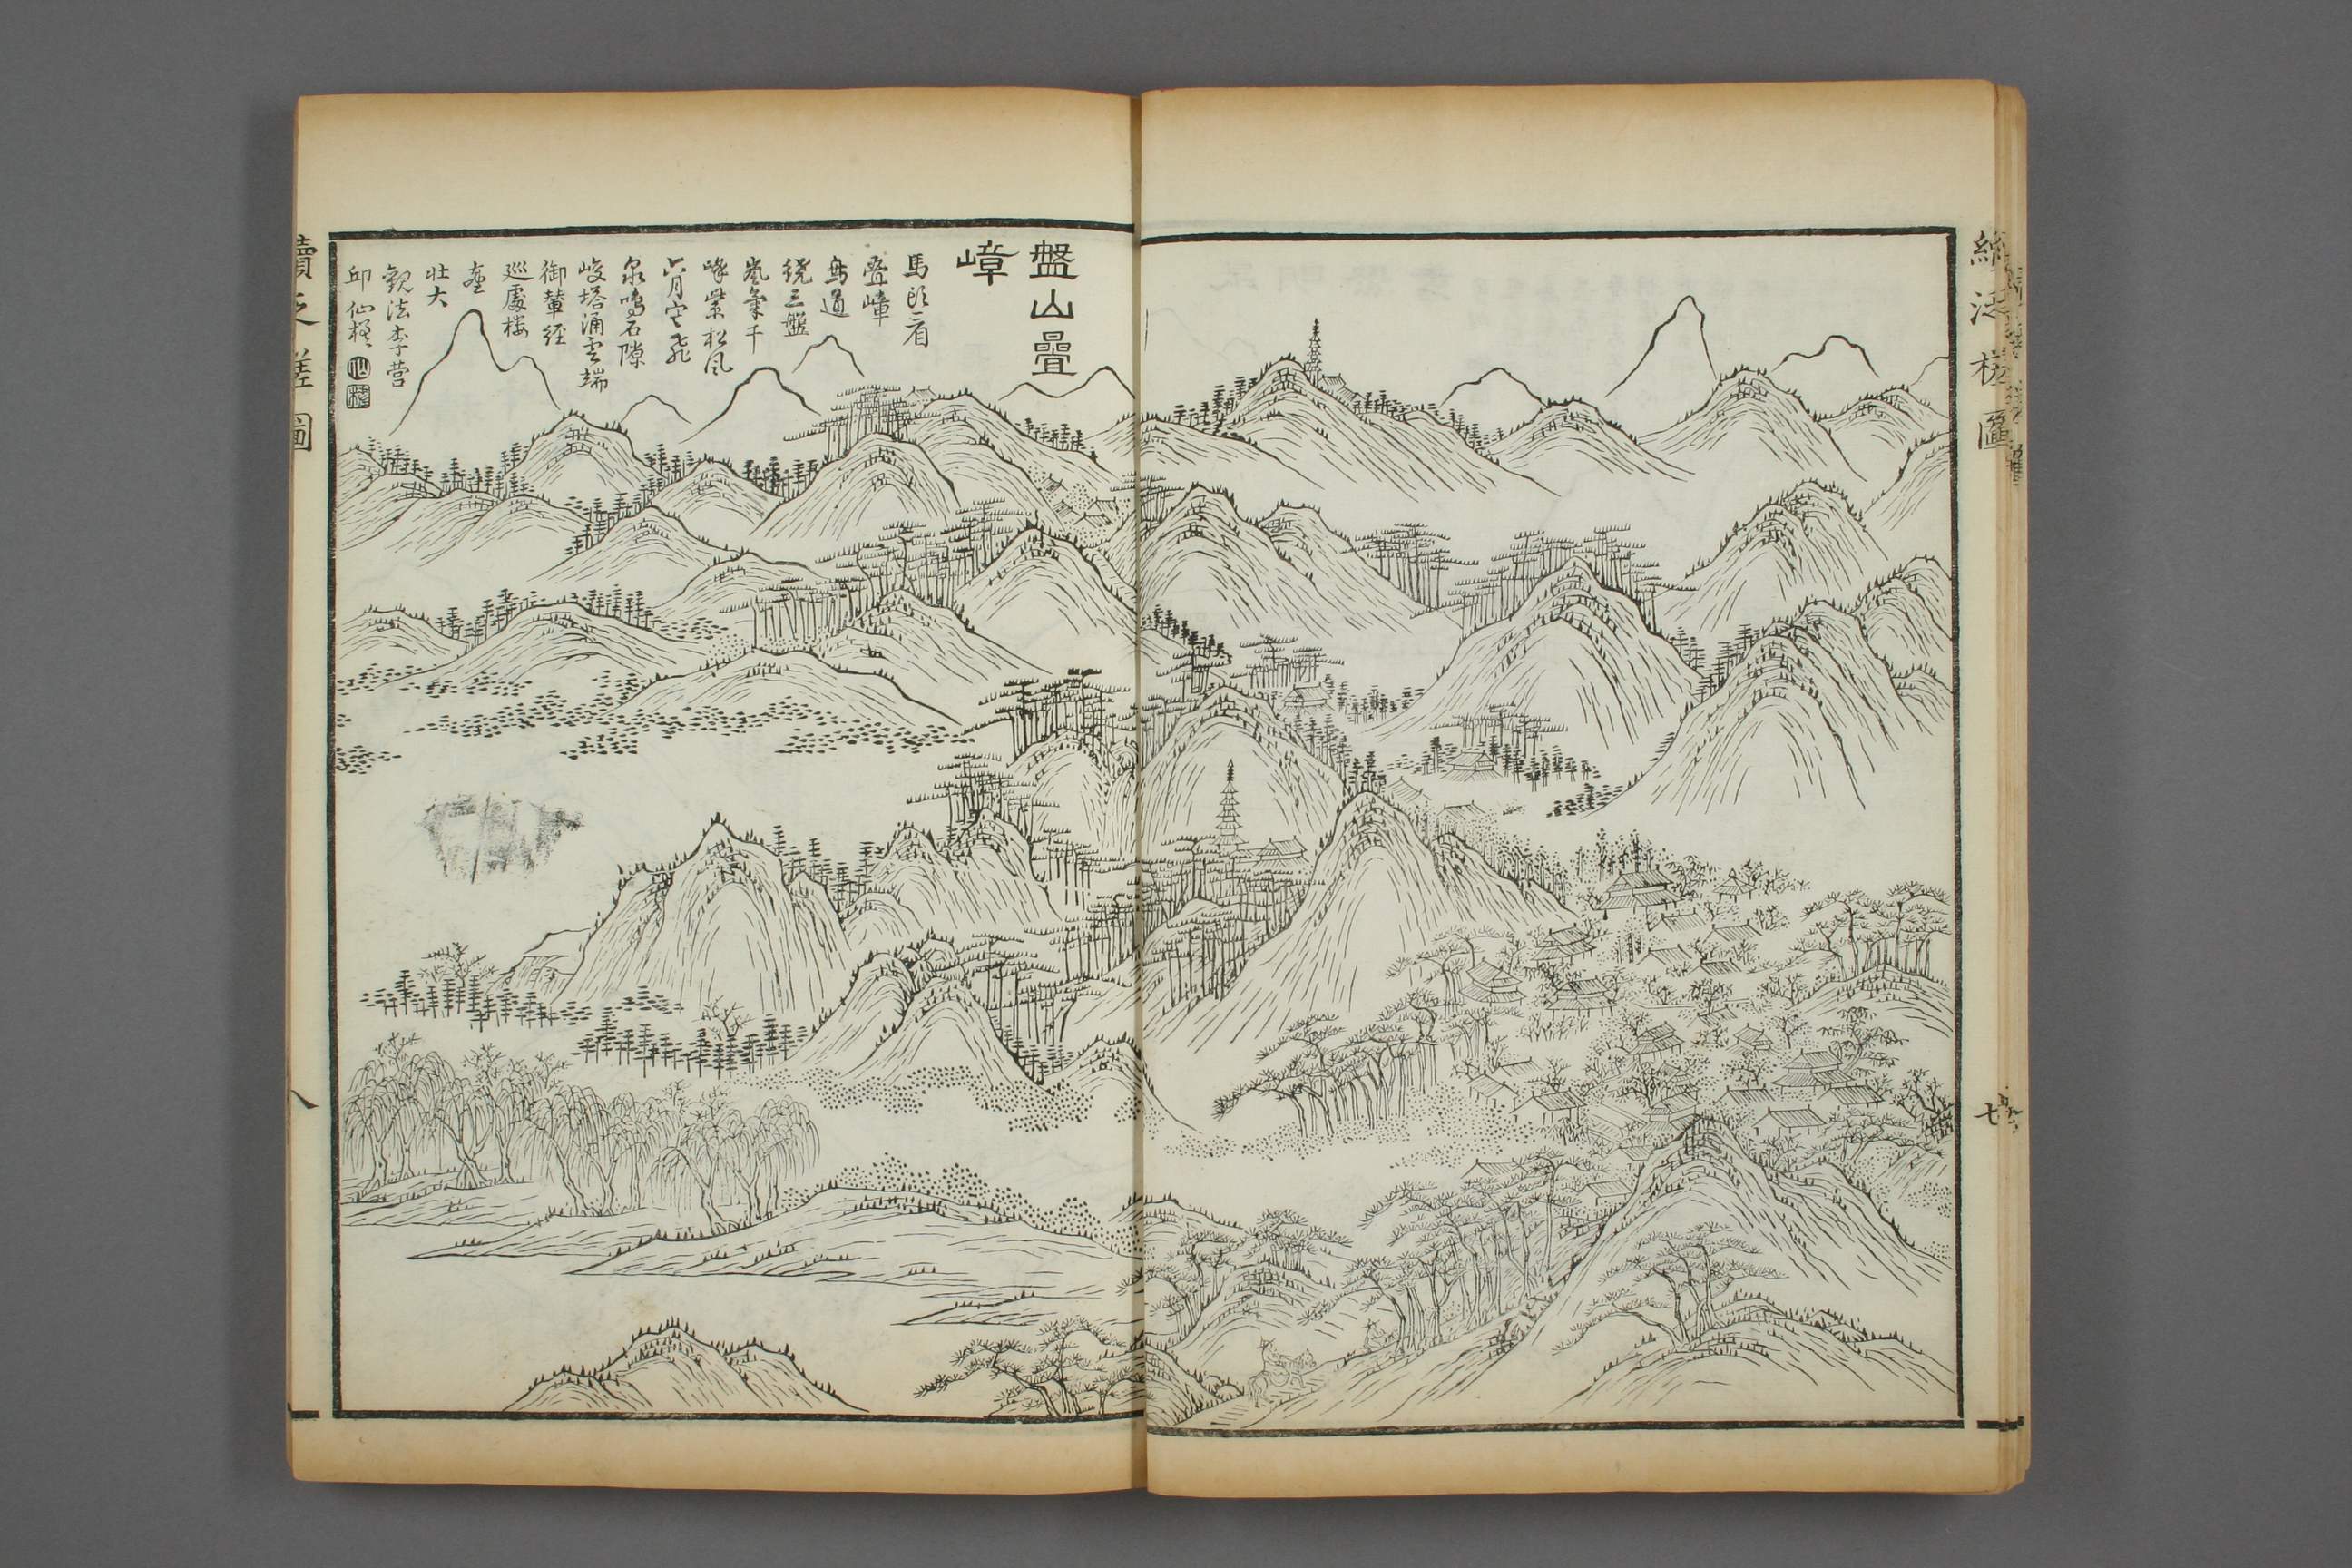 續泛槎圖
七
盤山疊
嶂
馬頭看
疊嶂
鳥道
繞三盤
嵐氣千
峰紫松風
六月寒飛
泉鳴石隙
峻塔涌雲端
御輦經
巡處樓
臺
壯大
觀法李營
邱仙槎
仙槎
續泛槎圖
八